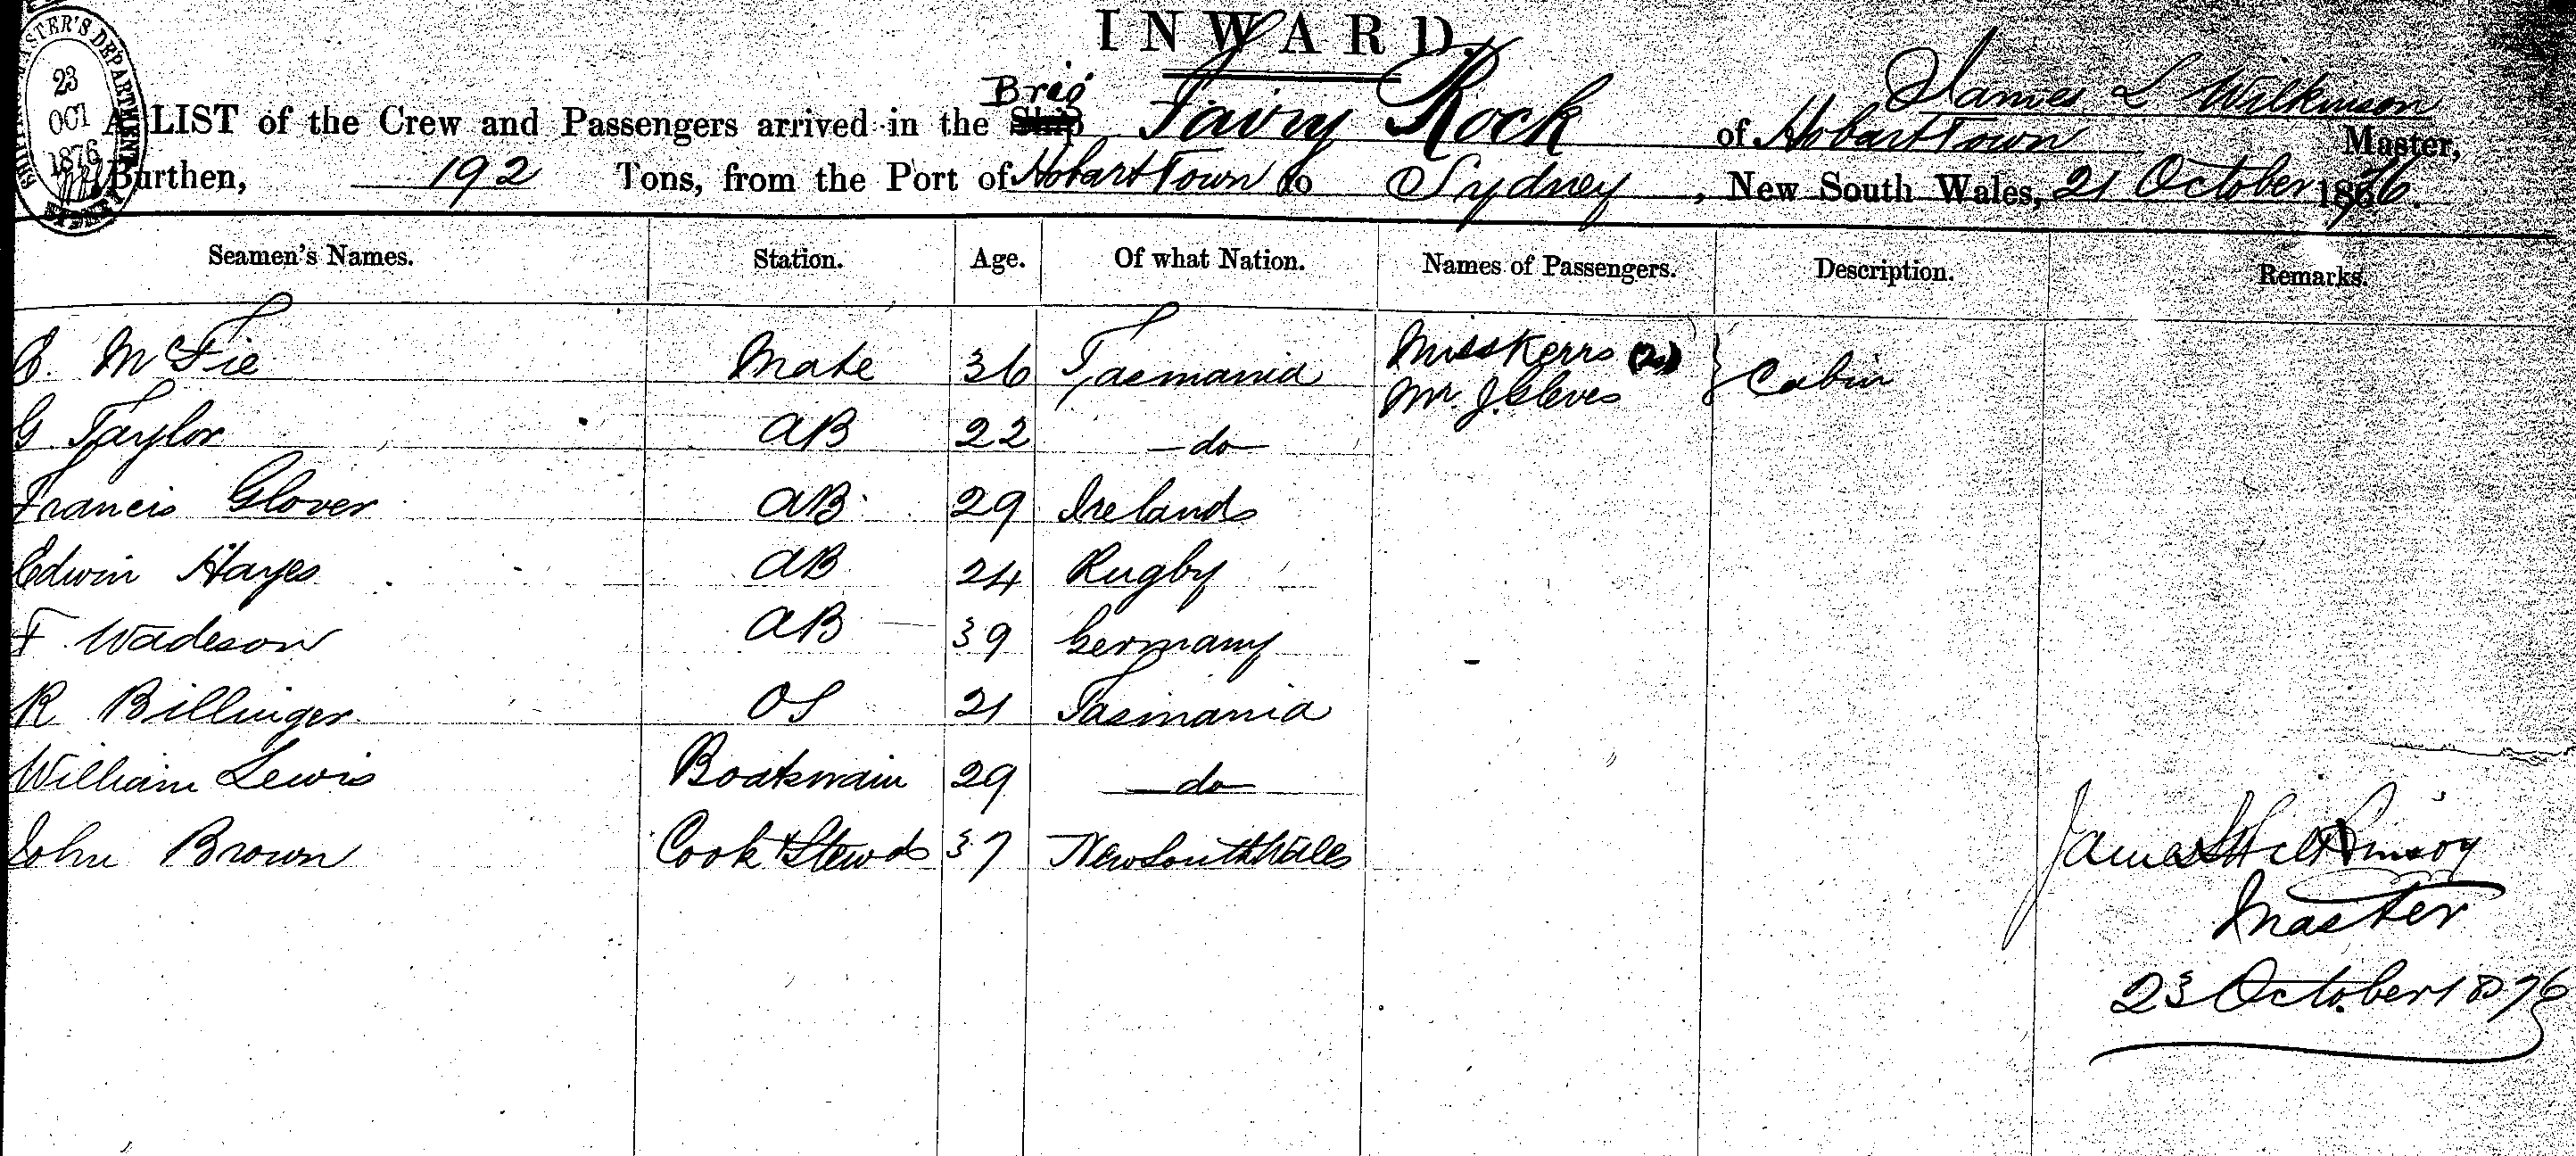 INWARD.
SHIPPING MASTER'S DEPARTMENT
23
OCT
1876
SYDNEY
James L Wilkinson
Brig
A LIST of the Crew and Passengers arrived in the Ship Fairy Rock of Hobart Town Master,
Burthen, 192 Tons, from the Port of Hobart Town to Sydney, New South Wales, 21 October 1876.
Seamen's Names. Station. Age. Of what Nation. Names of Passengers. Description. Remarks.
E. McFie Mate 36 Tasmania Miss Kerrs (2) } Cabin
Mr. J. Cleves
G Taylor AB 22 —do—
Francis Glover AB 29 Ireland
Edwin Hayes AB 24 Rugby
F Wadeson AB 39 Germany
R Billinger OS 21 Tasmania
William Lewis Boatswain 29 —do—
John Brown Cook & Stewd 37 New South Wales
James L Wilkinson
Master
23 October 1876